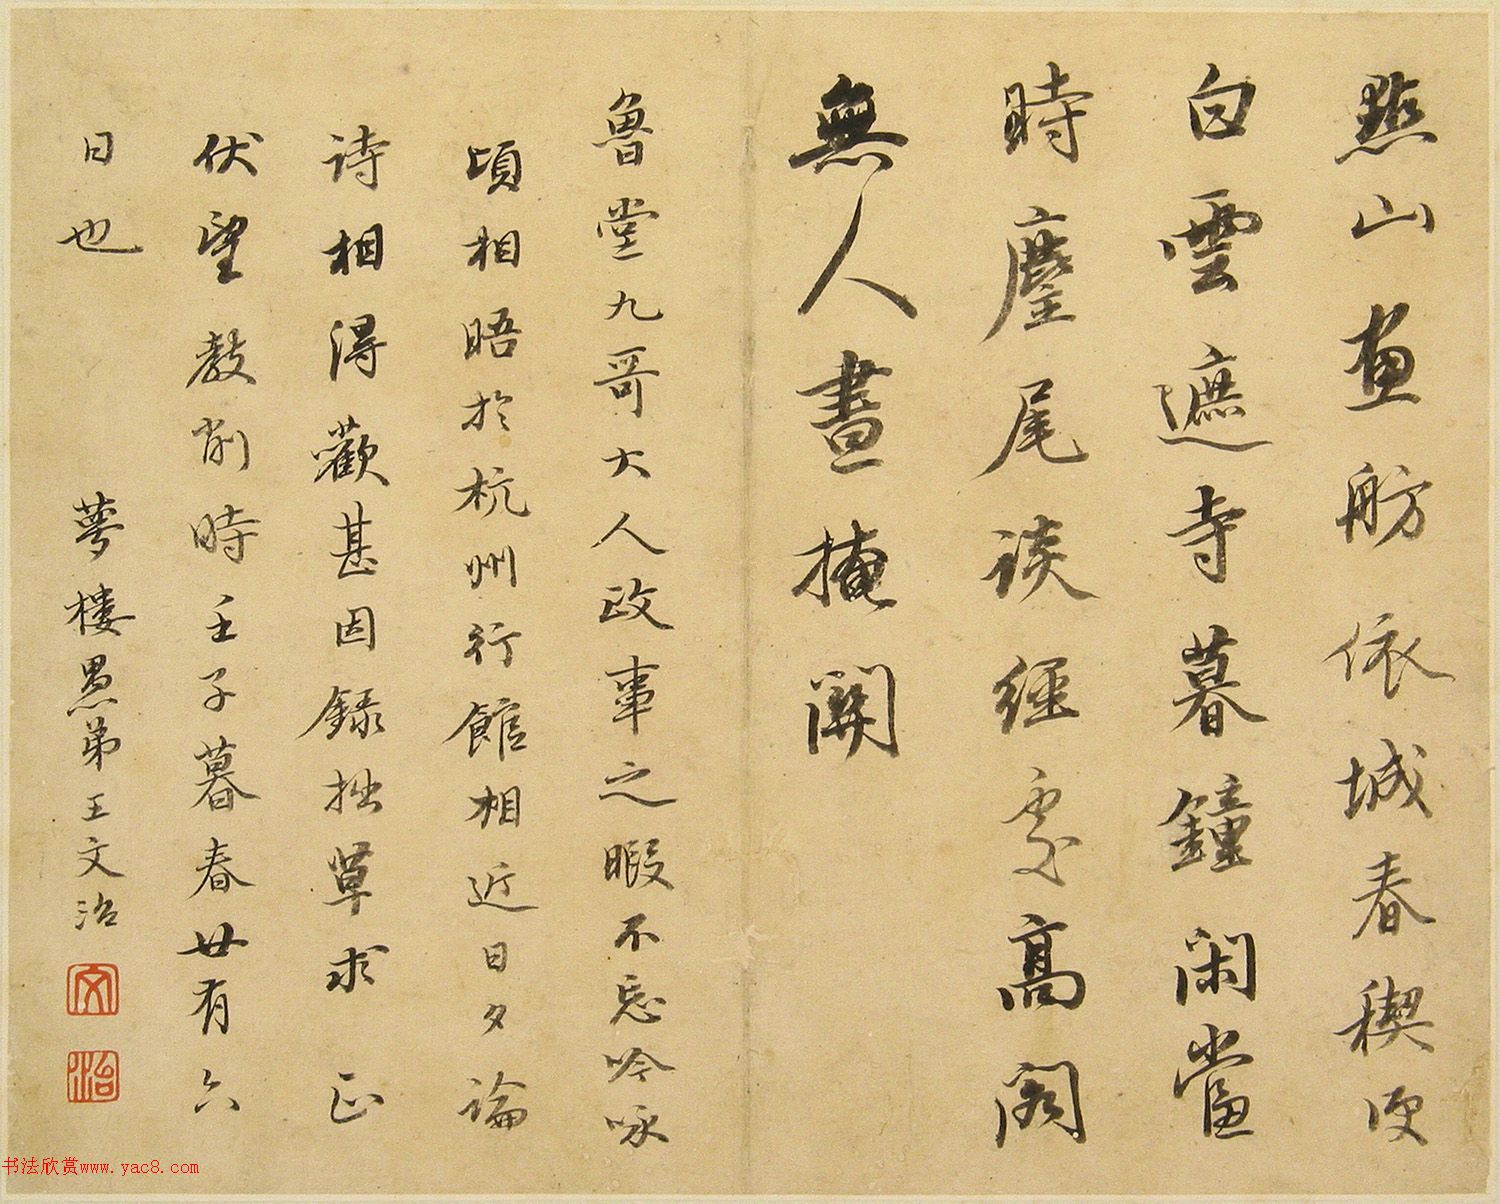 點山畫舫依城春禊便
白雲遮寺暮鐘閑當
時麈尾談經處高閣
無人晝掩關
魯堂九哥大人政事之暇不忘吟咏
頃相晤於杭州行館相近日夕論
詩相得歡甚因錄拙草求正
伏望教削時壬子暮春廿有六
日也
夢樓愚弟王文治
文
治
书法欣赏www.yac8.com